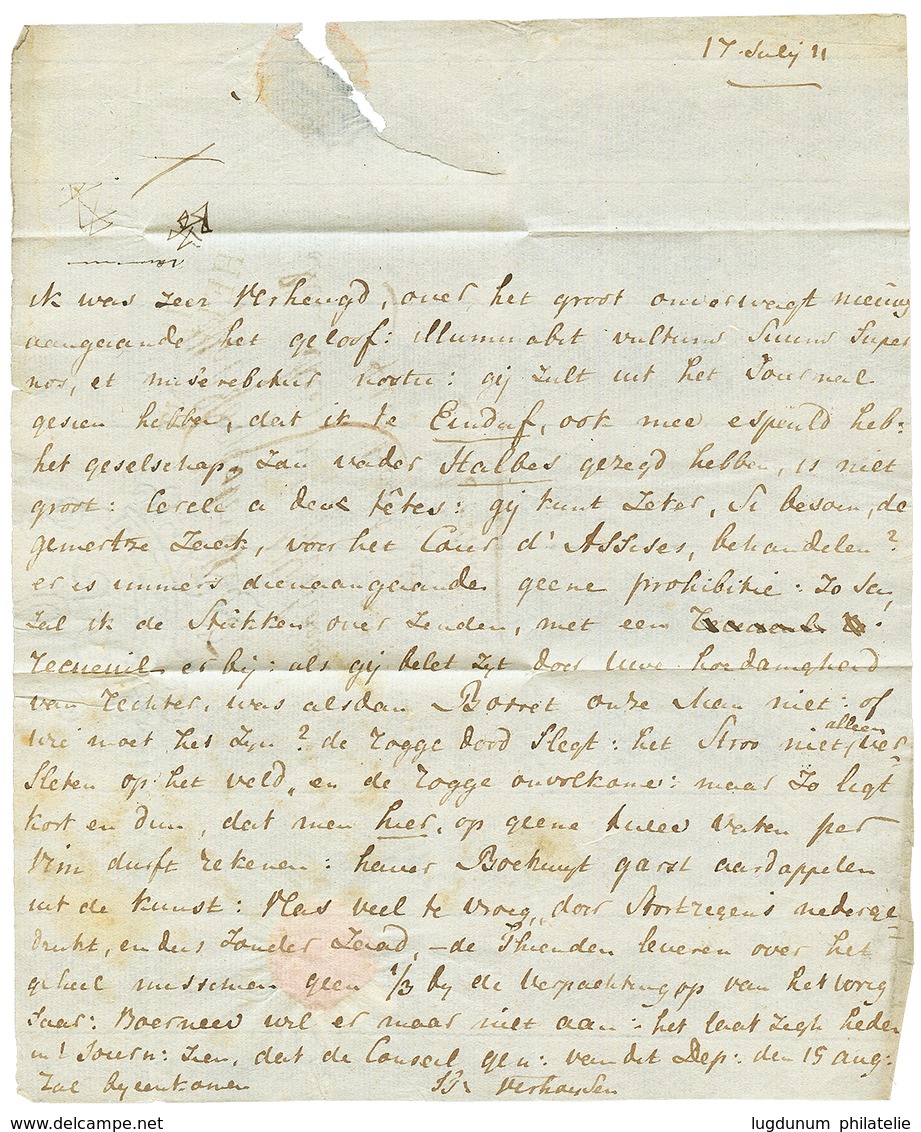 17 Julij 11
ik was zeer verheugd, over het groot onverwagt nieuws
aangaande het geloof: illuminabit vultum Suum super
nos, et miserebitur nostri: gij zult uit het Journal
gesien hebben, dat ik te, ook mee espeuld heb:
het geselschap, zou vader Halbes gezegd hebben, is niet
groot: Cercle a deux têtes: gij kunt zeker, Si besoin, de
zaak, voor het Cour d'Assises, behandelen?
er is immers dienaangaande geene prohibitie: zo Ja,
zal ik de Stukken over zenden, met een
recueuil er bij: als gij belet zyt door Uwe hoedanigheid
van rechter, was alsdan Borret onze Man niet: of
wie moet het zyn? de rogge doed slegt: het Stroo niet alleen ver=
sleten op het veld, en de rogge onvolkomen: maar zo ligt
kort en dun, dat men hier, op geene twee vaten per
vim durft rekenen: haver Boekwyt garst aardappelen
uit de kunst: Vlas veel te vroeg, door Stortregens nederge=
drukt, en dus zonder zaad, – de Thienden leveren over het
geheel misschien geen 1/3 by de verpachting op van het vorig
Jaar: Boernees wil er maar niet aan: het laat zegh heden
in 't Journ: zien, dat de Conseil gen: van dit Dep: den 15 aug:
zal byeenkomen
Verheyden
lugdunum philatelie